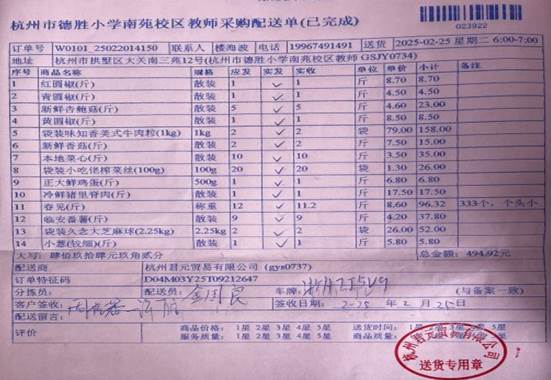 杭州市德胜小学南苑校区教师采购配送单(已完成)
023922
订单号 W0101_25022014150 联系人 楼海波 电话 19967491491 送货 2025-02-25 星期二 6:00-7:00
地址 杭州市拱墅区大关南三苑12号(杭州市德胜小学南苑校区教师 GSJY0734)
序号 商品名称 规格 应发 实发 实收 单位 单价 小计 备注
1 红圆椒(斤) 散装 1 1 斤 8.70 8.70
2 青圆椒(斤) 散装 1 1 斤 4.70 4.70
3 新鲜杏鲍菇(斤) 散装 5 5 斤 4.60 23.00
4 黄圆椒(斤) 散装 1 1 斤 8.50 8.50
5 袋装味知香美式牛肉粒(1kg) 1kg 2 2 袋 79.00 158.00
6 新鲜香菇(斤) 散装 2 2 斤 7.50 15.00
7 本地菜心(斤) 散装 10 10 斤 3.50 35.00
8 袋装小吃佬榨菜丝(100g) 100g 20 20 袋 1.30 26.00
9 正大鲜鸡蛋(斤) 500g 1 1 斤 6.80 6.80
10 冷鲜猪里脊肉(斤) 散装 1 1 斤 17.50 17.50
11 春见(斤) 称重 12 11.2 斤 8.60 96.32 333个, 个头小
12 临安番薯(斤) 散装 9 9 斤 4.20 37.80
13 袋装久念大芝麻球(2.25kg) 2.25kg 2 2 袋 26.00 52.00
14 小葱(铰细)(斤) 散装 1 1 斤 5.80 5.80
大写: 肆佰玖拾肆元玖角贰分 总金额: 494.92元
配送商 杭州君元贸易有限公司 (gys0737)
订单特征码 D04M03Y25T09212647
分拣员: 配送员: 金国良 车牌: (与备案一致)
客户签收: 签收日期: 2-25 年 2 月 25 日
配送留言:
评价 商品价格: 1星 2星 3星 4星 5星 送货时间: 1星 2星 3星 4星 5星
服务质量: 1星 2星 3星 4星 5星 商品质量: 1星 2星 3星 4星 5星
杭州君元贸易有限公司
送货专用章